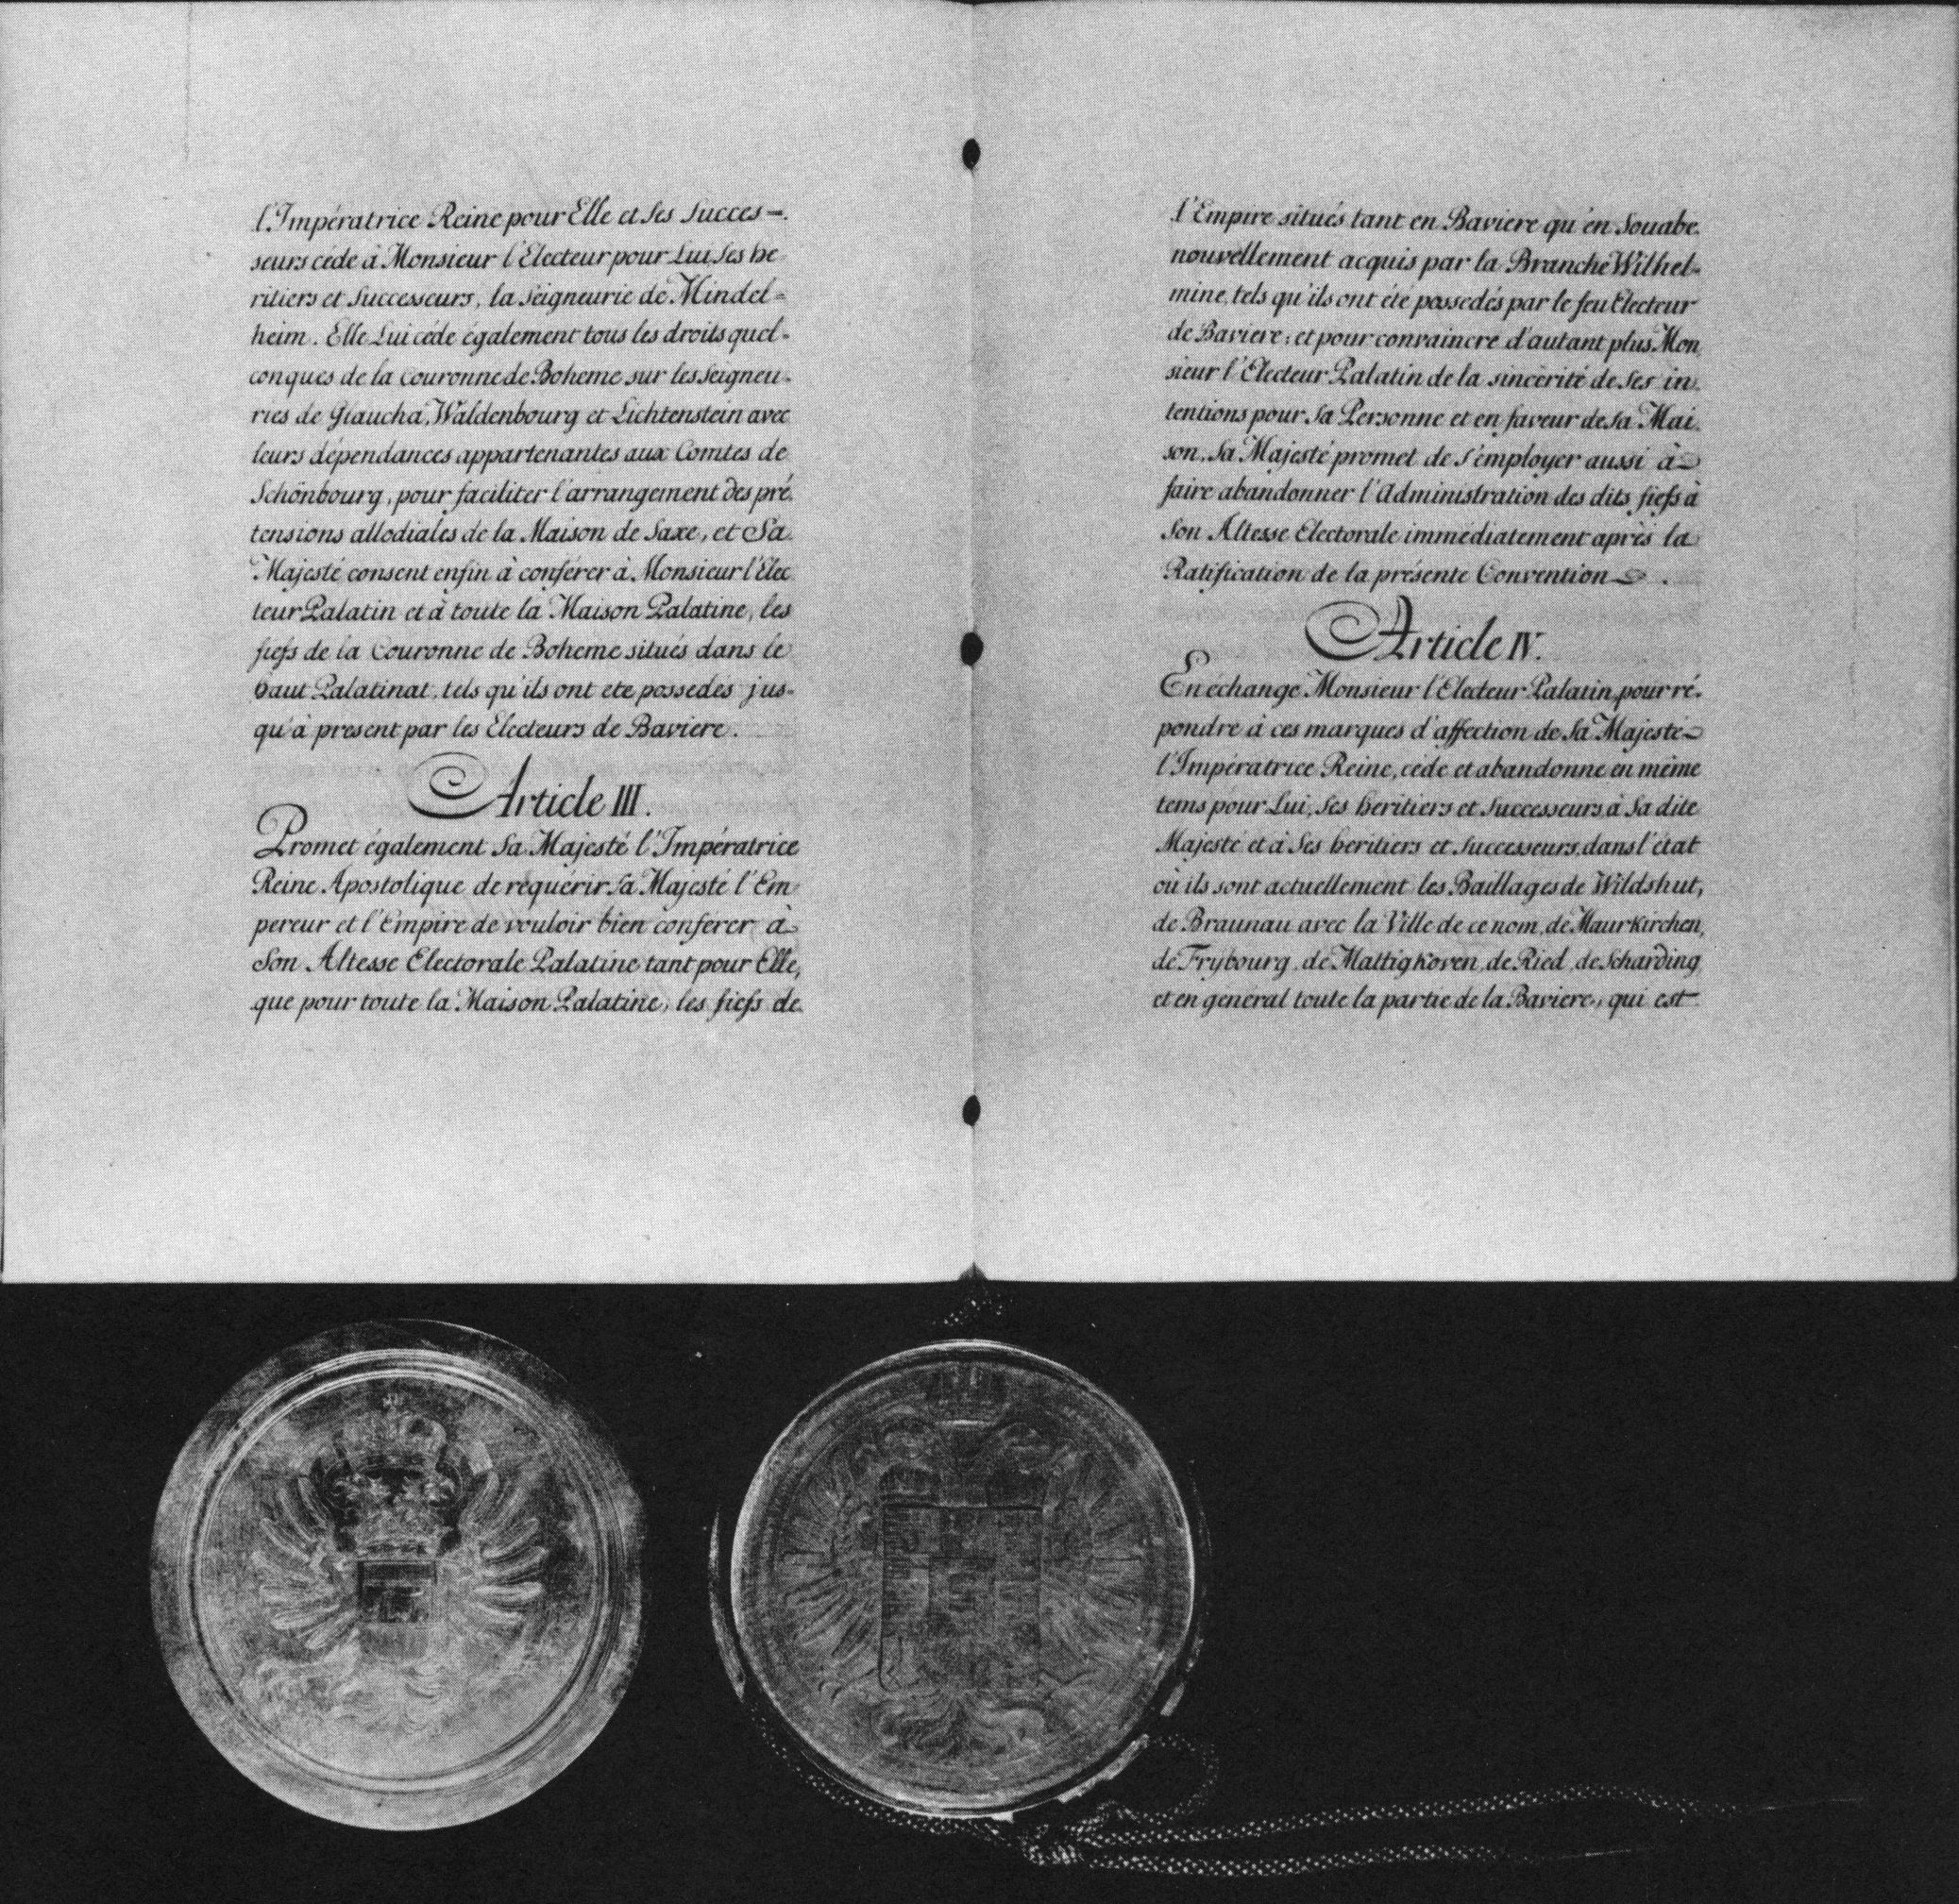 l'Impératrice Reine pour Elle et Ses Succes-
seurs céde à Monsieur l'Electeur pour Lui, Ses he
ritiers et Successeurs, la Seigneurie de Mindel=
heim. Elle Lui céde également tous les droits quel-
conques de la Couronne de Boheme sur les Seigneu-
ries de Glaucha, Waldenbourg et Lichtenstein avec
leurs dépendances appartenantes aux Comtes de
Schönbourg, pour faciliter l'arrangement des pré
tensions allodiales de la Maison de Saxe, et Sa
Majesté consent enfin à conférer à Monsieur l'Elec
teur Palatin et à toute la Maison Palatine, les
fiefs de la Couronne de Boheme situés dans le
haut Palatinat, tels qu'ils ont eté possedés jus-
qu'à present par les Electeurs de Baviere.
Article III.
Promet également Sa Majesté l'Impératrice
Reine Apostolique de réquérir Sa Majesté l'Em
pereur et l'Empire de vouloir bien conferer à
Son Altesse Electorale Palatine tant pour Elle,
que pour toute la Maison Palatine, les fiefs de
l'Empire situés tant en Baviere qu'en Souabe
nouvellement acquis par la Branche Wilhel-
mine, tels qu'ils ont été possedés par le feu Electeur
de Baviere; et pour convaincre d'autant plus Mon
sieur l'Electeur Palatin de la sincérité de Ses in
tentions pour Sa Personne et en faveur de Sa Mai
son, Sa Majesté promet de s'employer aussi à
faire abandonner l'Administration des dits fiefs à
Son Altesse Electorale immédiatement après la
Ratification de la présente Convention.
Article IV.
En échange Monsieur l'Electeur Palatin, pour ré-
pondre à ces marques d'affection de Sa Majesté
l'Impératrice Reine, céde et abandonne en même
tems pour Lui, Ses heritiers et Successeurs à Sa dite
Majesté et à Ses heritiers et Successeurs, dans l'état
où ils sont actuellement les Baillages de Wildshut,
de Braunau avec la Ville de ce nom, de Maurkirchen,
de Frybourg, de Mattigkoven, de Ried, de Scharding
et en general toute la partie de la Baviere, qui est